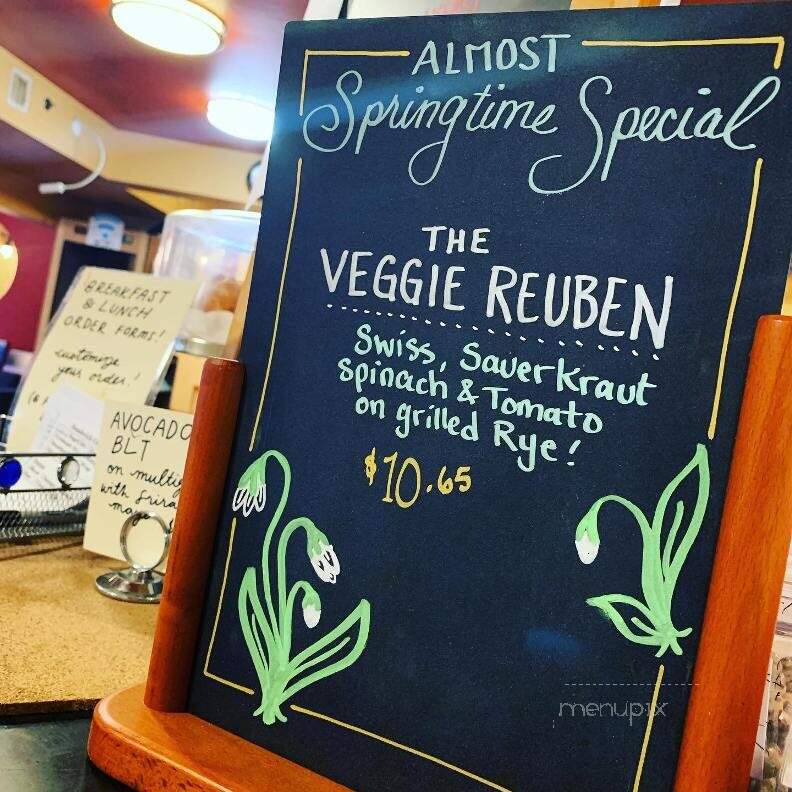 ALMOST
Springtime Special
THE
VEGGIE REUBEN
Swiss, Sauerkraut
Spinach & Tomato
on grilled Rye!
$10.65
BREAKFAST
& LUNCH
ORDER FORMS!
customize
your order!
AVOCADO
BLT
on multig
with Srira
mayo
menupix